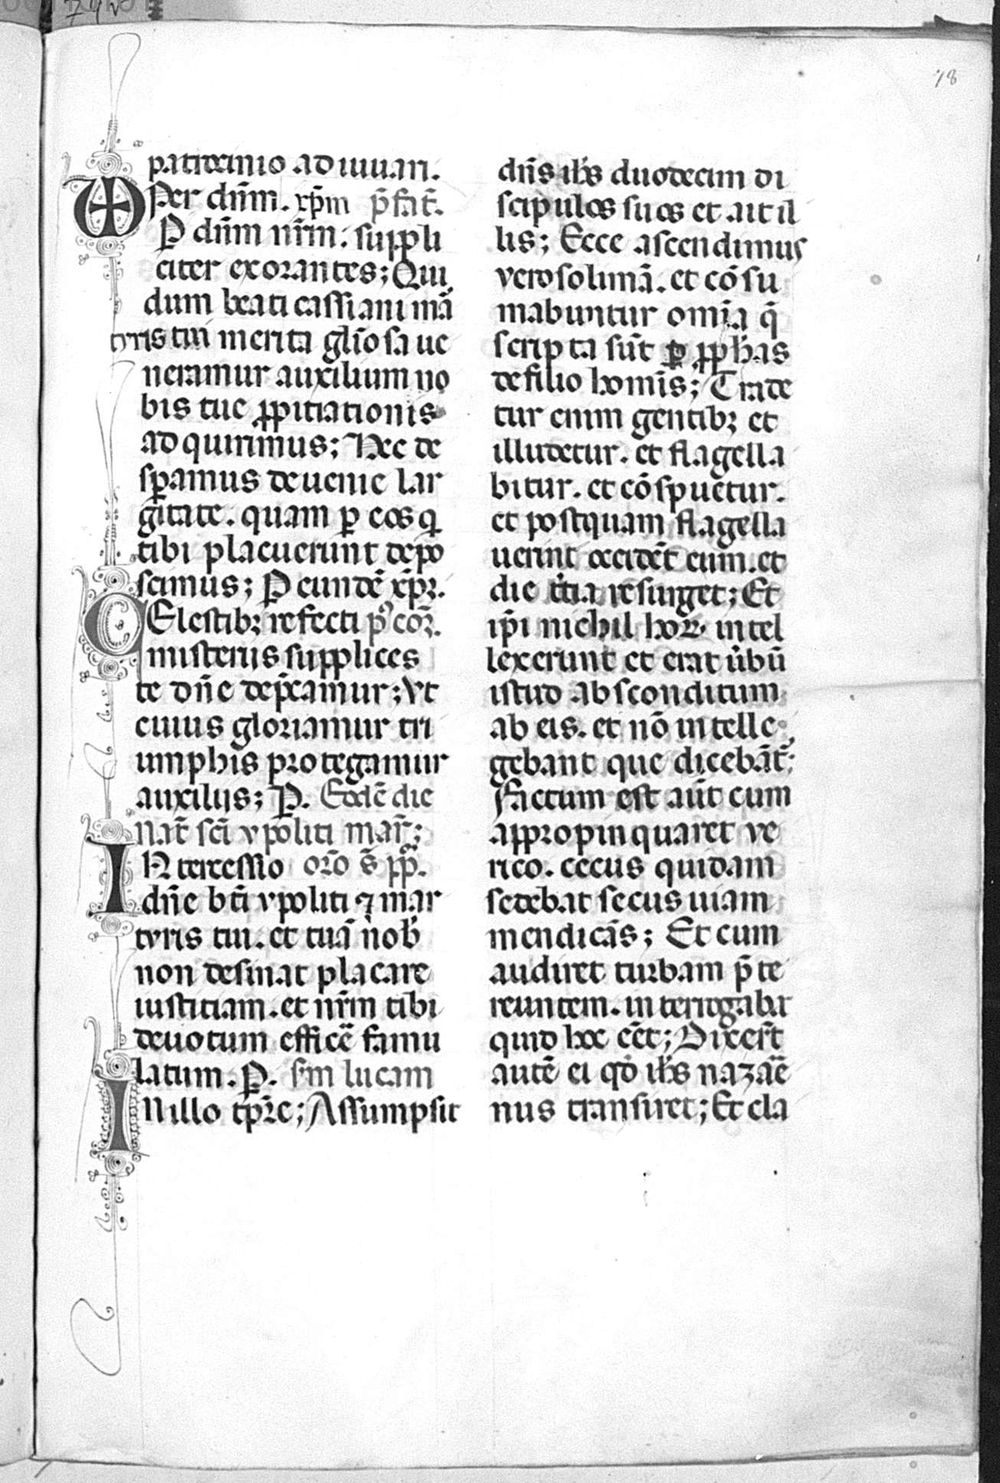 78
patrocinio adiuuari.
Per dn̄m. xp̄m p̄fat̄.
VD
P dn̄m nr̄m. suppli
citer exorantes; Qui
dum beati cassiani mā
tyris tui merita gl̄iosa ue
neramur auxilium no
bis tue ꝓpitiationis
adquirimus; Nec de
sꝑamus de uenie lar
gitate. quam ꝑ eos q̄
tibi placuerunt depo
scimus; P eundē xp̄z.
CElestibꝫ refecti p̄ coꝫ.
misteriis supplices
te dn̄e dep̄camur; Vt
cuius gloriamur tri
umphis protegamur
auxiliis; P. Eodē die
nat̄ sc̄i ypoliti mar̄;
INtercessio oro s̄ pp̄.
dn̄e bt̄i ypoliti ⁊ mar
tyris tui. et tuā nob̄
non desinat placare
iustitiam. et nr̄m tibi
deuotum efficē famu
latum. P. sm̄ lucam
INillo tp̄re; Assumpsit
dn̄s ih̄s duodecim di
scipulos suos et ait il
lis; Ecce ascendimus
yerosolimā. et cōsu
mabuntur omīa q̄
scripta sūt ꝑ ꝓph̄as
de filio homīs; Trade
tur enim gentibꝫ et
illudetur. et flagella
bitur. et cōspuetur.
et postquam flagella
uerint occidēt eum. et
die t̄tia resurget; Et
ip̄i nichil hoꝝ intel
lexerunt et erat ūbū
istud absconditum
ab eis. et nō intelle
gebant que dicebāt̄;
Factum est aūt cum
appropinquaret ye
rico. cecus quidam
sedebat secus uiam
mendicās; Et cum
audiret turbam p̄te
reuntem. interrogabat
quid hoc eēt; Dixer̄t
autē ei qđ ih̄s nazaē
nus transiret; Et cla